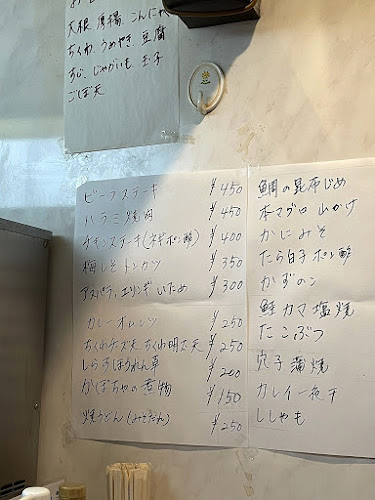 大根、厚揚、こんにゃ
ちくわ、うめやき、豆腐
すじ、じゃがいも、玉子
ごぼ天
ビーフステーキ ¥450
ハラミ焼肉 ¥450
チキンステーキ(ネギポン酢) ¥400
梅しそトンカツ ¥350
アスパラ、エリンギいため ¥300
カレーオムレツ ¥250
ちくわチーズ天 ちくわ明太天 ¥250
しらすほうれん草 ¥200
かぼちゃの煮物 ¥150
焼うどん ¥250
鯛の昆布じめ
本マグロ山かけ
かにみそ
たら白子ポン酢
かずのこ
鮭カマ塩焼
たこぶつ
穴子蒲焼
カレイ一夜干
ししゃも